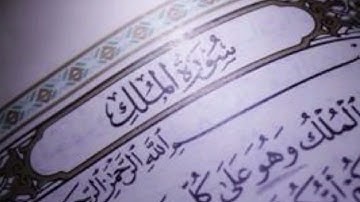 سُورَةُ المُلْكِ
اللَّهِ الرَّحْمَٰنِ الرَّحِيمِ
الْمُلْكُ وَهُوَ عَلَىٰ كُلِّ